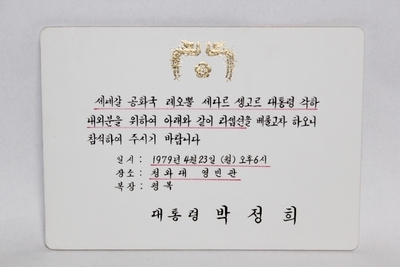 세네갈 공화국 레오뽈 세다르 생고르 대통령 각하
내외분을 위하여 아래와 같이 리셉션을 베풀고자 하오니
참석하여 주시기 바랍니다
일시 : 1979년 4월 23일 (월) 오후6시
장소 : 청와대 영빈관
복장 : 평복
대통령 박정희